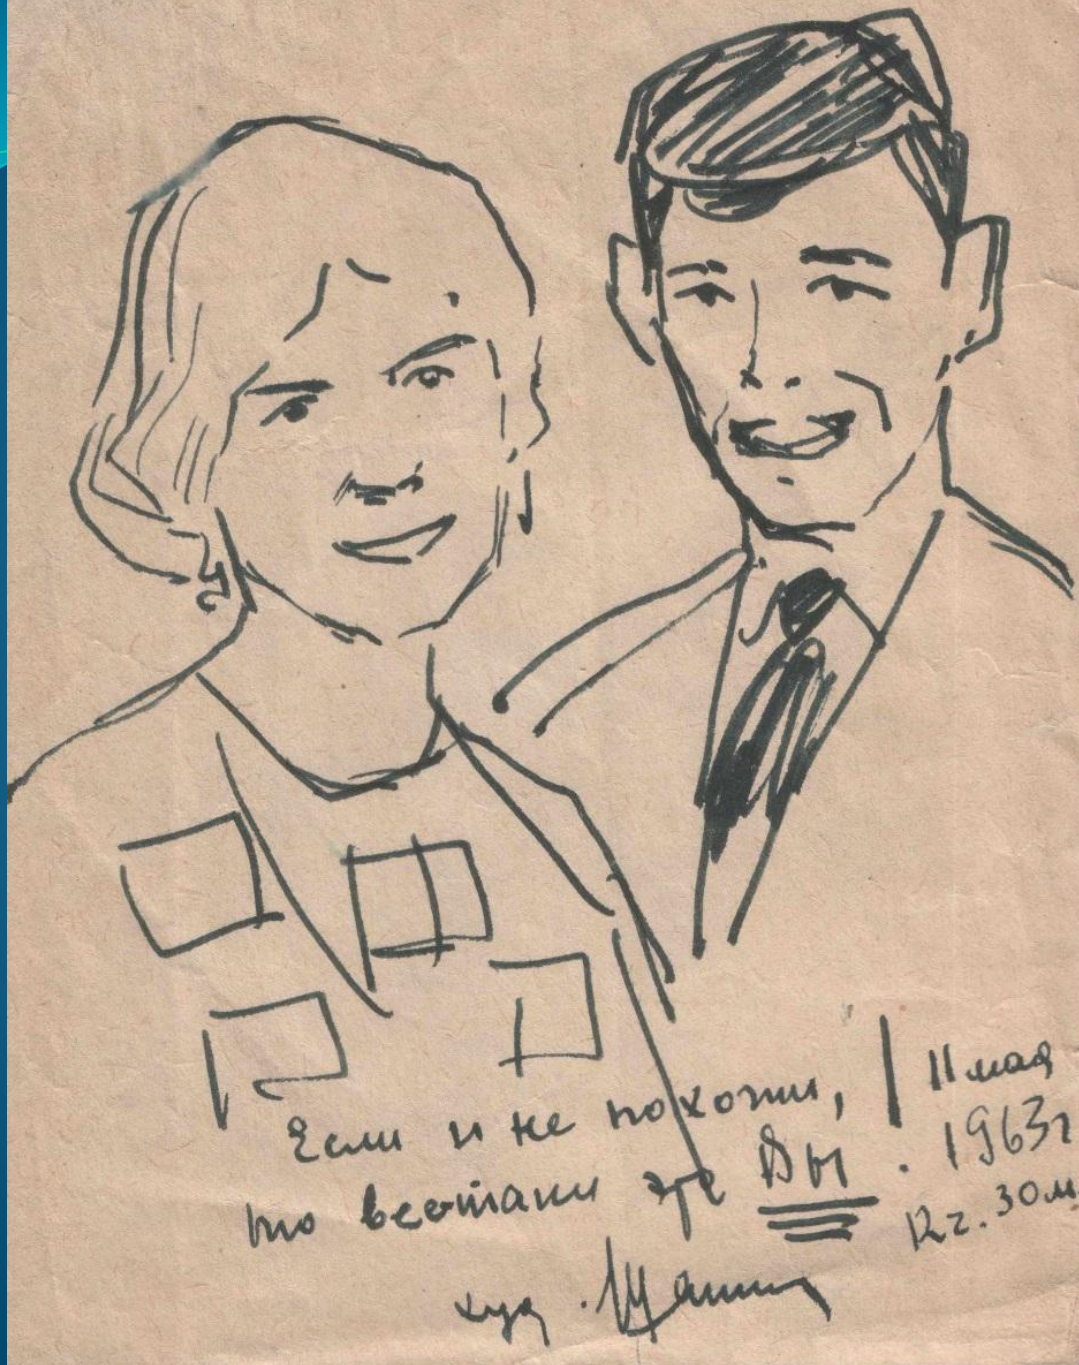 Если и не похожи,
то всетаки это Вы.
11 мая
1963г
12 г. 30 м
худ.